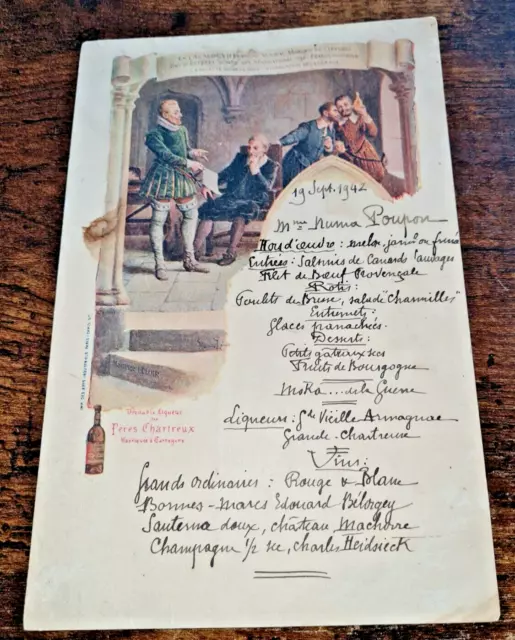 19 Sept. 1942
Mme Numa Poupon
Hors d'œuvre : melon
Entrées : Salmis de Canards Sauvages
Filet de Bœuf Provençale
Rotis :
Poulets de Bresse, salade "Charmilles"
Entremets :
Glaces panachées
Desserts :
Petits gateaux secs
Fruits de Bourgogne
Moka .... de la Guerre
Liqueurs : Vieille Armagnac
Grande-Chartreuse
Vins :
Grands ordinaires : Rouge & Blanc
Bonnes-Mares Edouard Bélorgey
Sauterne doux, château Machorre
Champagne 1/2 sec, Charles Heidsieck
Liqueur
Pères Chartreux